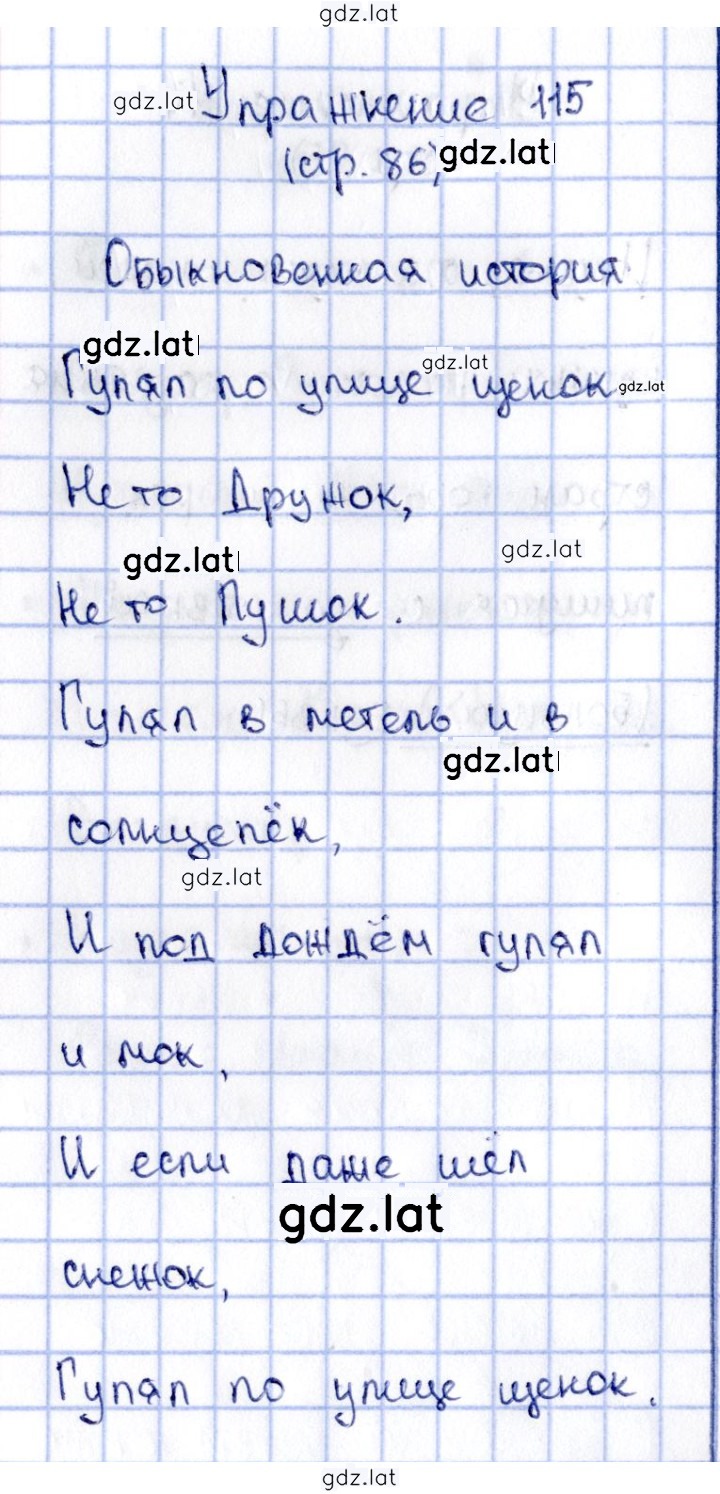 gdz.lat
gdz.lat Упражнение 115
(стр. 86) gdz.lat
Обыкновенная история
gdz.lat
Гулял по улице gdz.lat щенок gdz.lat
Не то Дружок,
gdz.lat gdz.lat
Не то Пушок.
Гулял в метель и в
gdz.lat
солнцепёк,
gdz.lat
И под дождём гулял
и мок,
И если даже шёл
gdz.lat
снежок,
Гулял по улице щенок.
gdz.lat